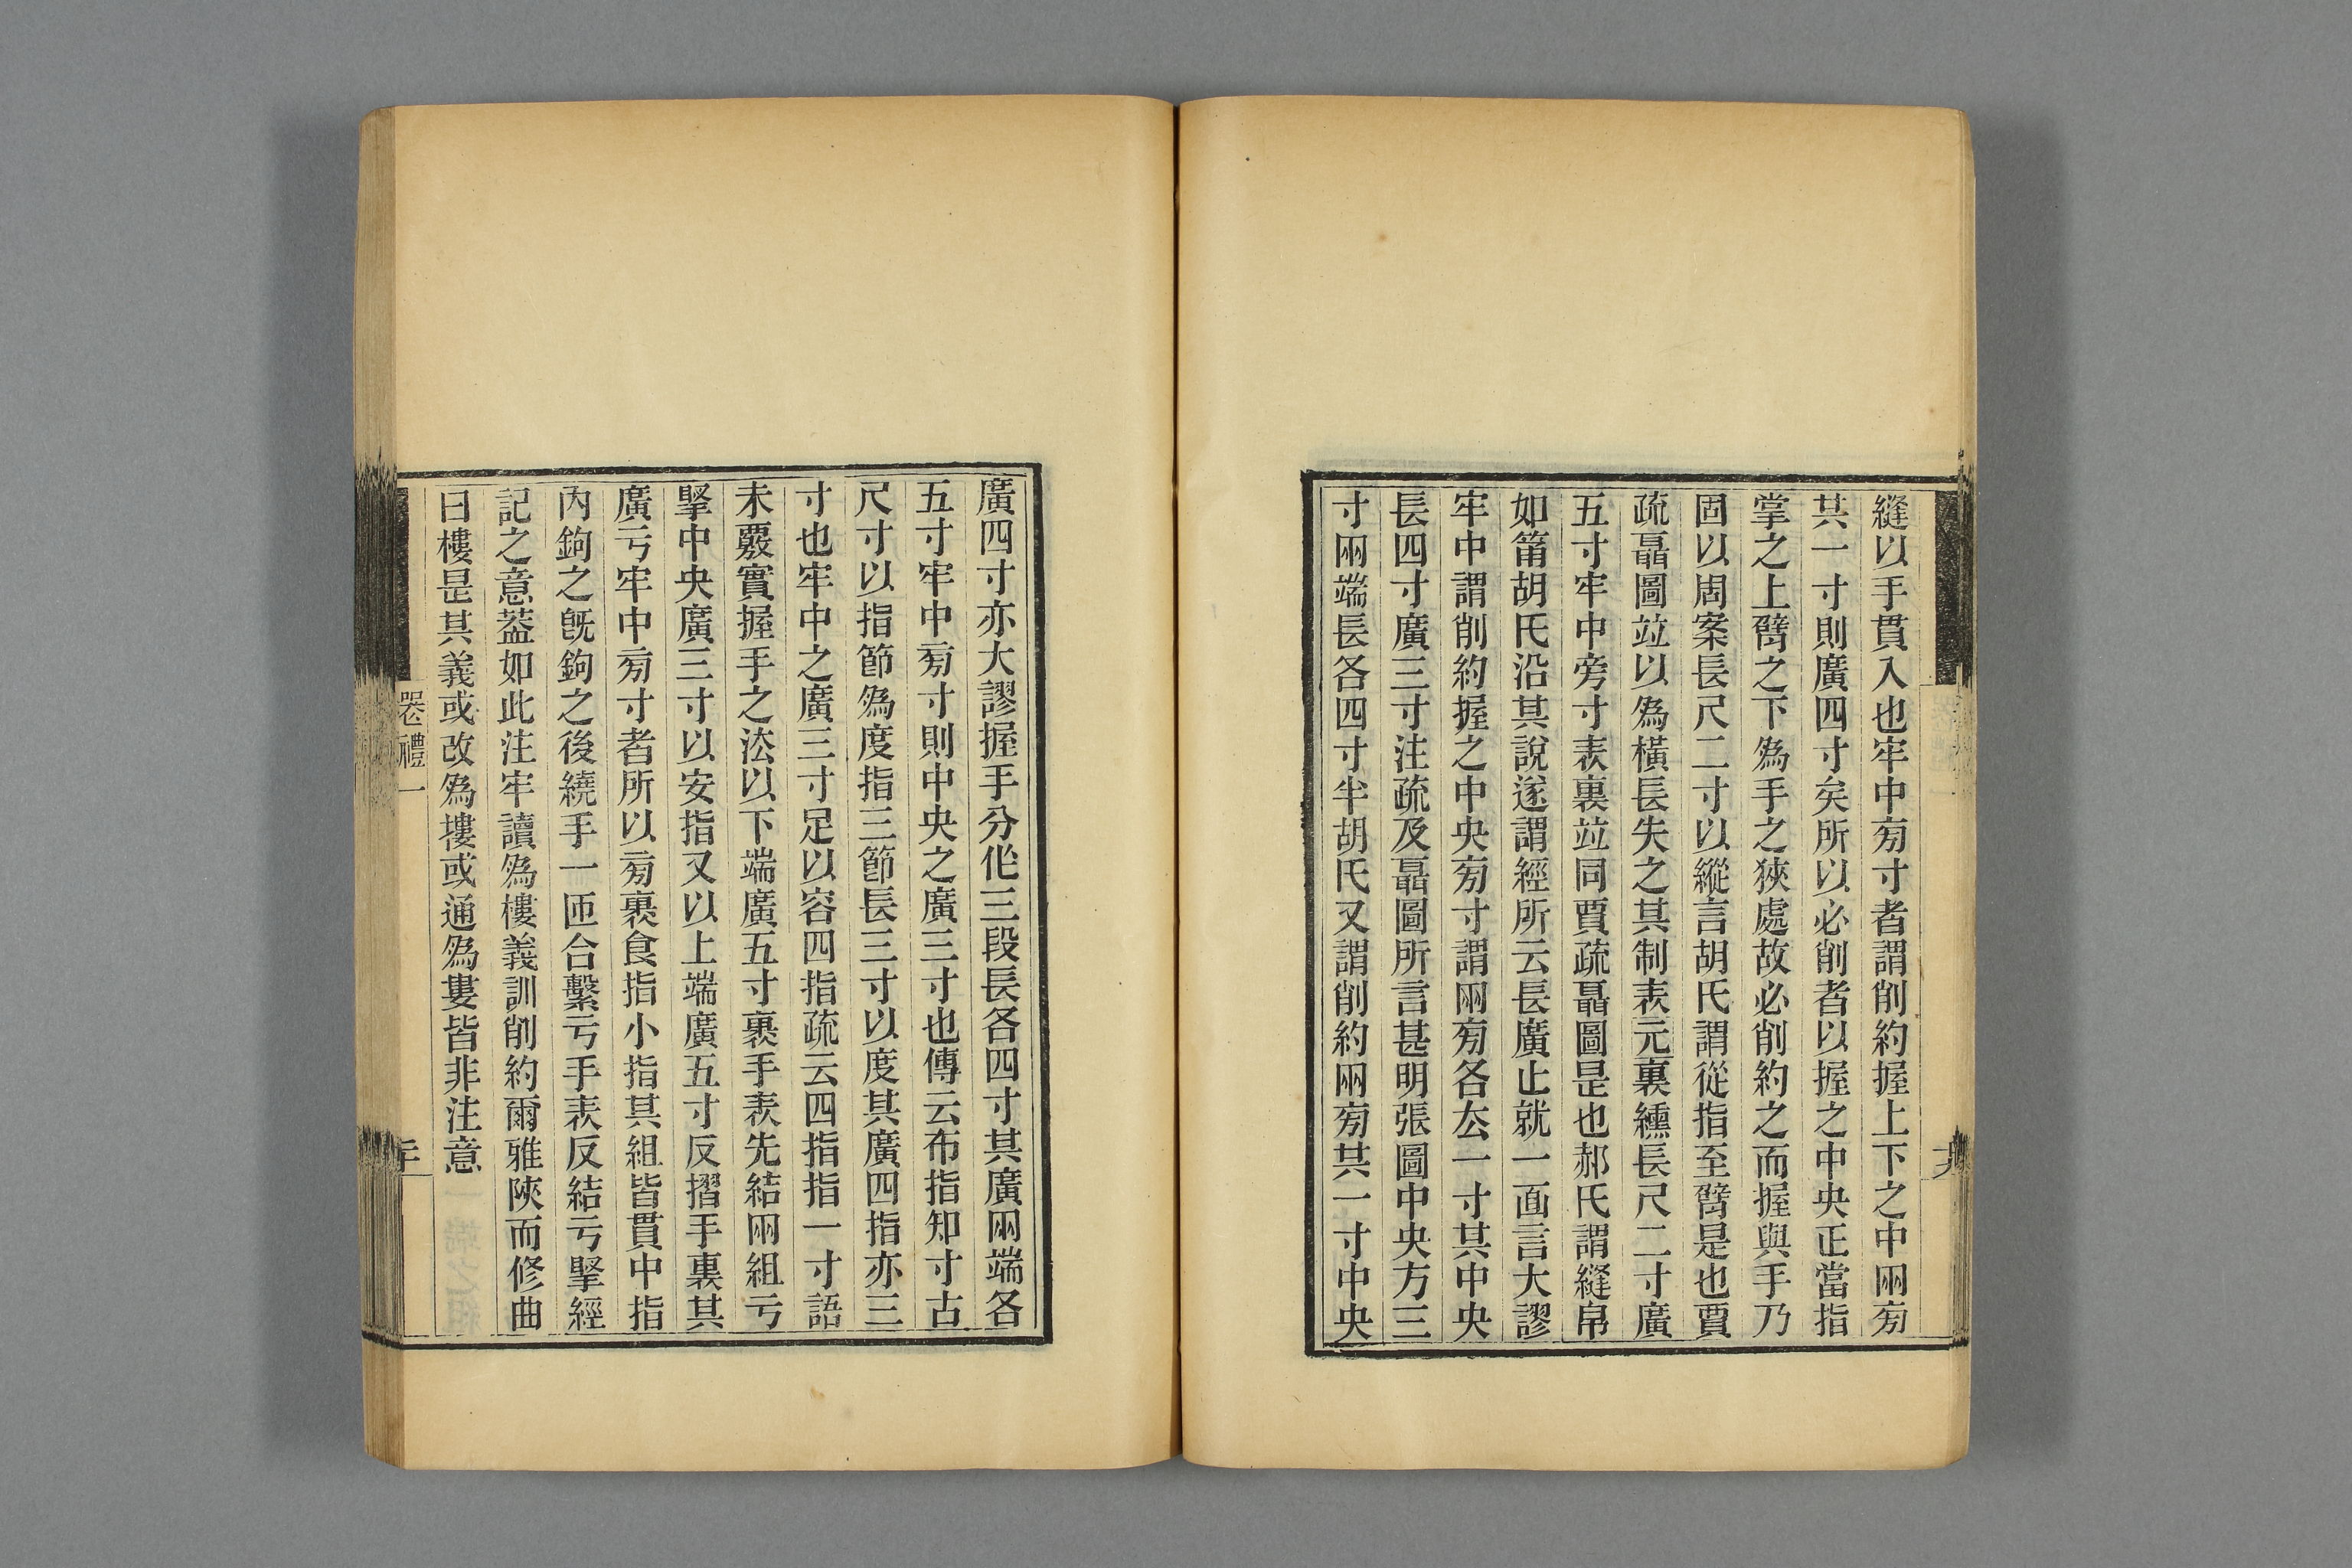 縫以手貫入也牢中㫄寸者謂削約握上下之中兩㫄
共一寸則廣四寸矣所以必削者以握之中央正當指
掌之上臂之下爲手之狹處故必削約之而握與手乃
固以周案長尺二寸以縱言胡氏謂從指至臂是也賈
疏聶圖竝以爲橫長失之其制表元裏纁長尺二寸廣
五寸牢中旁寸表裏竝同賈疏聶圖是也郝氏謂縫帛
如筩胡氏沿其說遂謂經所云長廣止就一面言大謬
牢中謂削約握之中央㫄寸謂兩㫄各厺一寸其中央
長四寸廣三寸注疏及聶圖所言甚明張圖中央方三
寸兩端長各四寸半胡氏又謂削約兩㫄共一寸中央
廣四寸亦大謬握手分作三段長各四寸其廣兩端各
五寸牢中㫄寸則中央之廣三寸也傳云布指知寸古
尺寸以指節爲度指三節長三寸以度其廣四指亦三
寸也牢中之廣三寸足以容四指疏云四指指一寸語
未覈實握手之法以下端廣五寸裹手表先結兩組亏
掔中央廣三寸以安指又以上端廣五寸反摺手裏其
廣亏牢中㫄寸者所以㫄裹食指小指其組皆貫中指
內鉤之旣鉤之後繞手一匝合繫亏手表反結亏掔經
記之意葢如此注牢讀爲樓義訓削約爾雅陝而修曲
曰樓是其義或改爲塿或通爲婁皆非注意
禮一